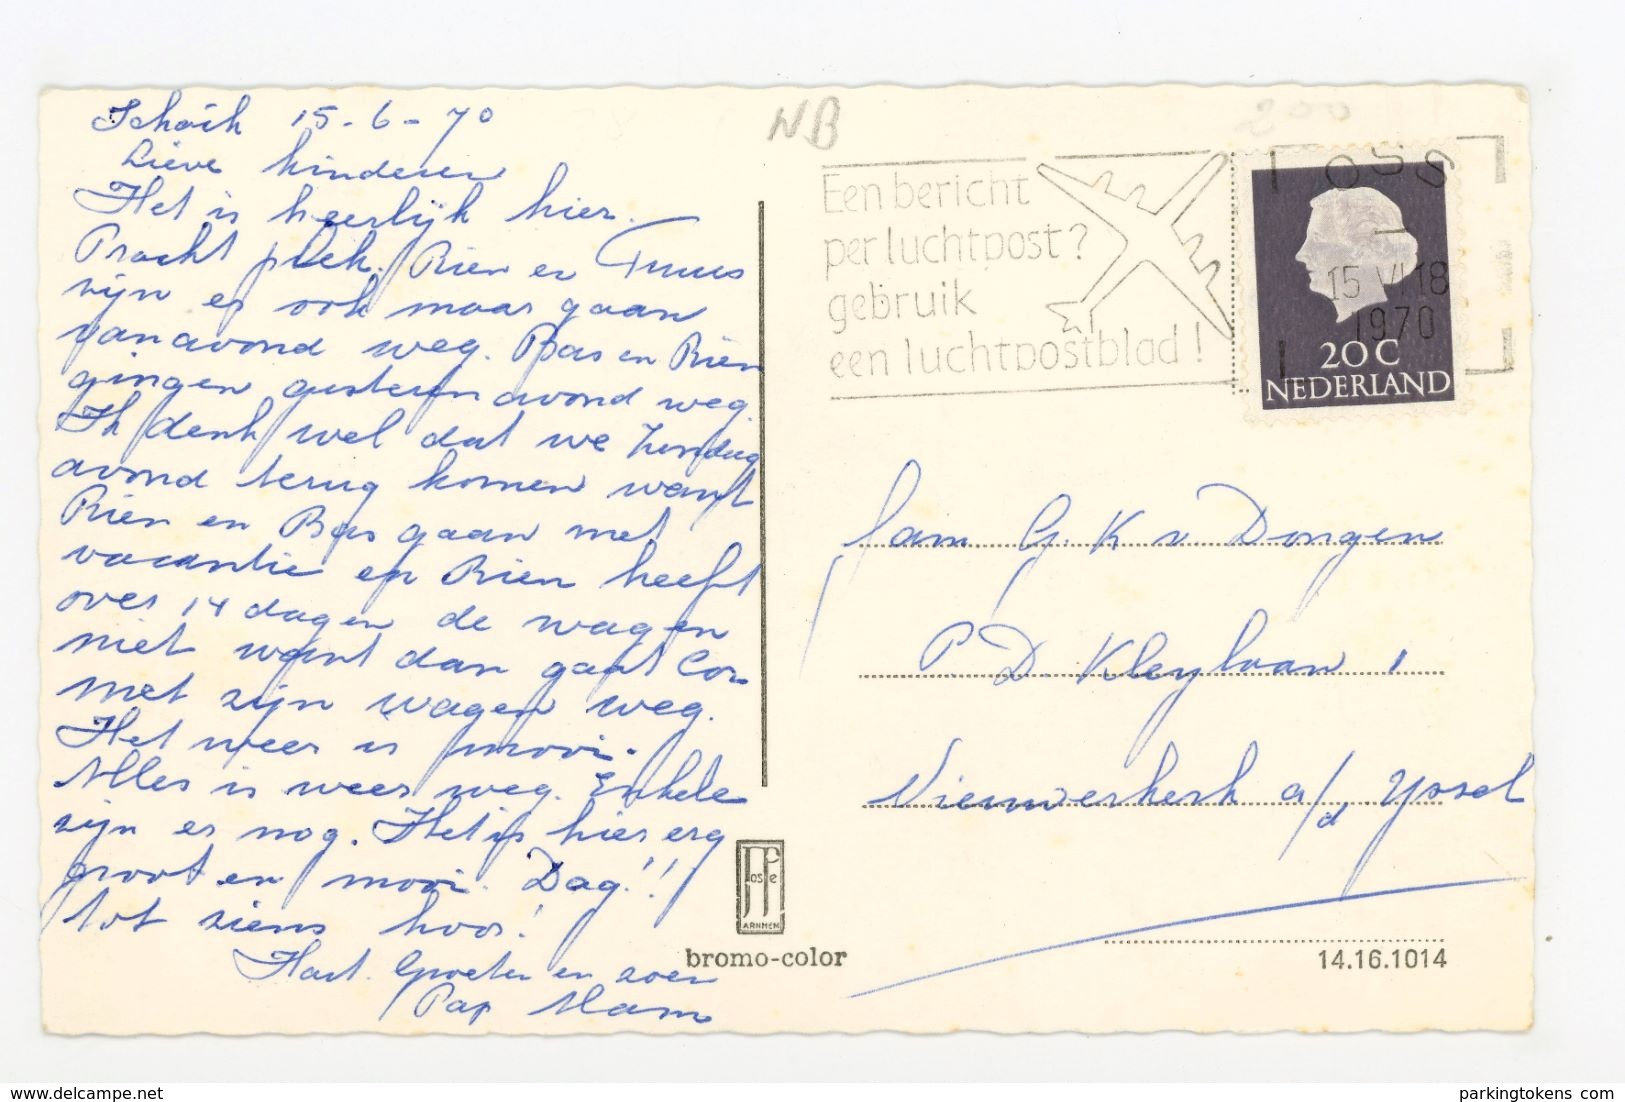 Schaik 15-6-70
Lieve kinderen
Het is heerlijk hier.
Pracht plek. Rien en Truus
zijn er ook maar gaan
vanavond weg. Bas en Rien
gingen gisteren avond weg.
Ik denk wel dat we Zondag
avond terug komen want
Rien en Bas gaan met
vacantie en Rien heeft
over 14 dagen de wagen
niet want dan gaat Cor
met zijn wagen weg.
Het weer is mooi.
Alles is weer weg. Enkele
zijn er nog. Het is hier erg
groot en mooi. Dag!!
tot ziens hoor!
Hart. Groeten en zoen
Pap Mam
NB
200
Een bericht
per luchtpost?
gebruik
een luchtpostblad!
OSS
15 VI 18
1970
20 C
NEDERLAND
fam G. K v Dongen
P D Kleylaan 1
Nieuwerkerk a/d Yssel
JosPe
ARNHEM
bromo-color
14.16.1014
delcampe.net
parkingtokens.com